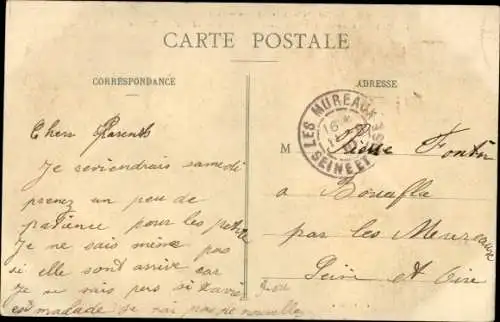 CARTE POSTALE
CORRESPONDANCE
ADRESSE
Chers Parents
Je reviendrais samedi
prenez un peu de
patience pour les petits
Je ne sais même pas
si elle sont arrivé car
Je ne sais pas si Xavier
est malade je n'ai pas de nouvelles
LES MUREAUX
16
SEINE ET OISE
M Pierre Fontin
a Bouafle
par les Mureaux
Seine et Oise